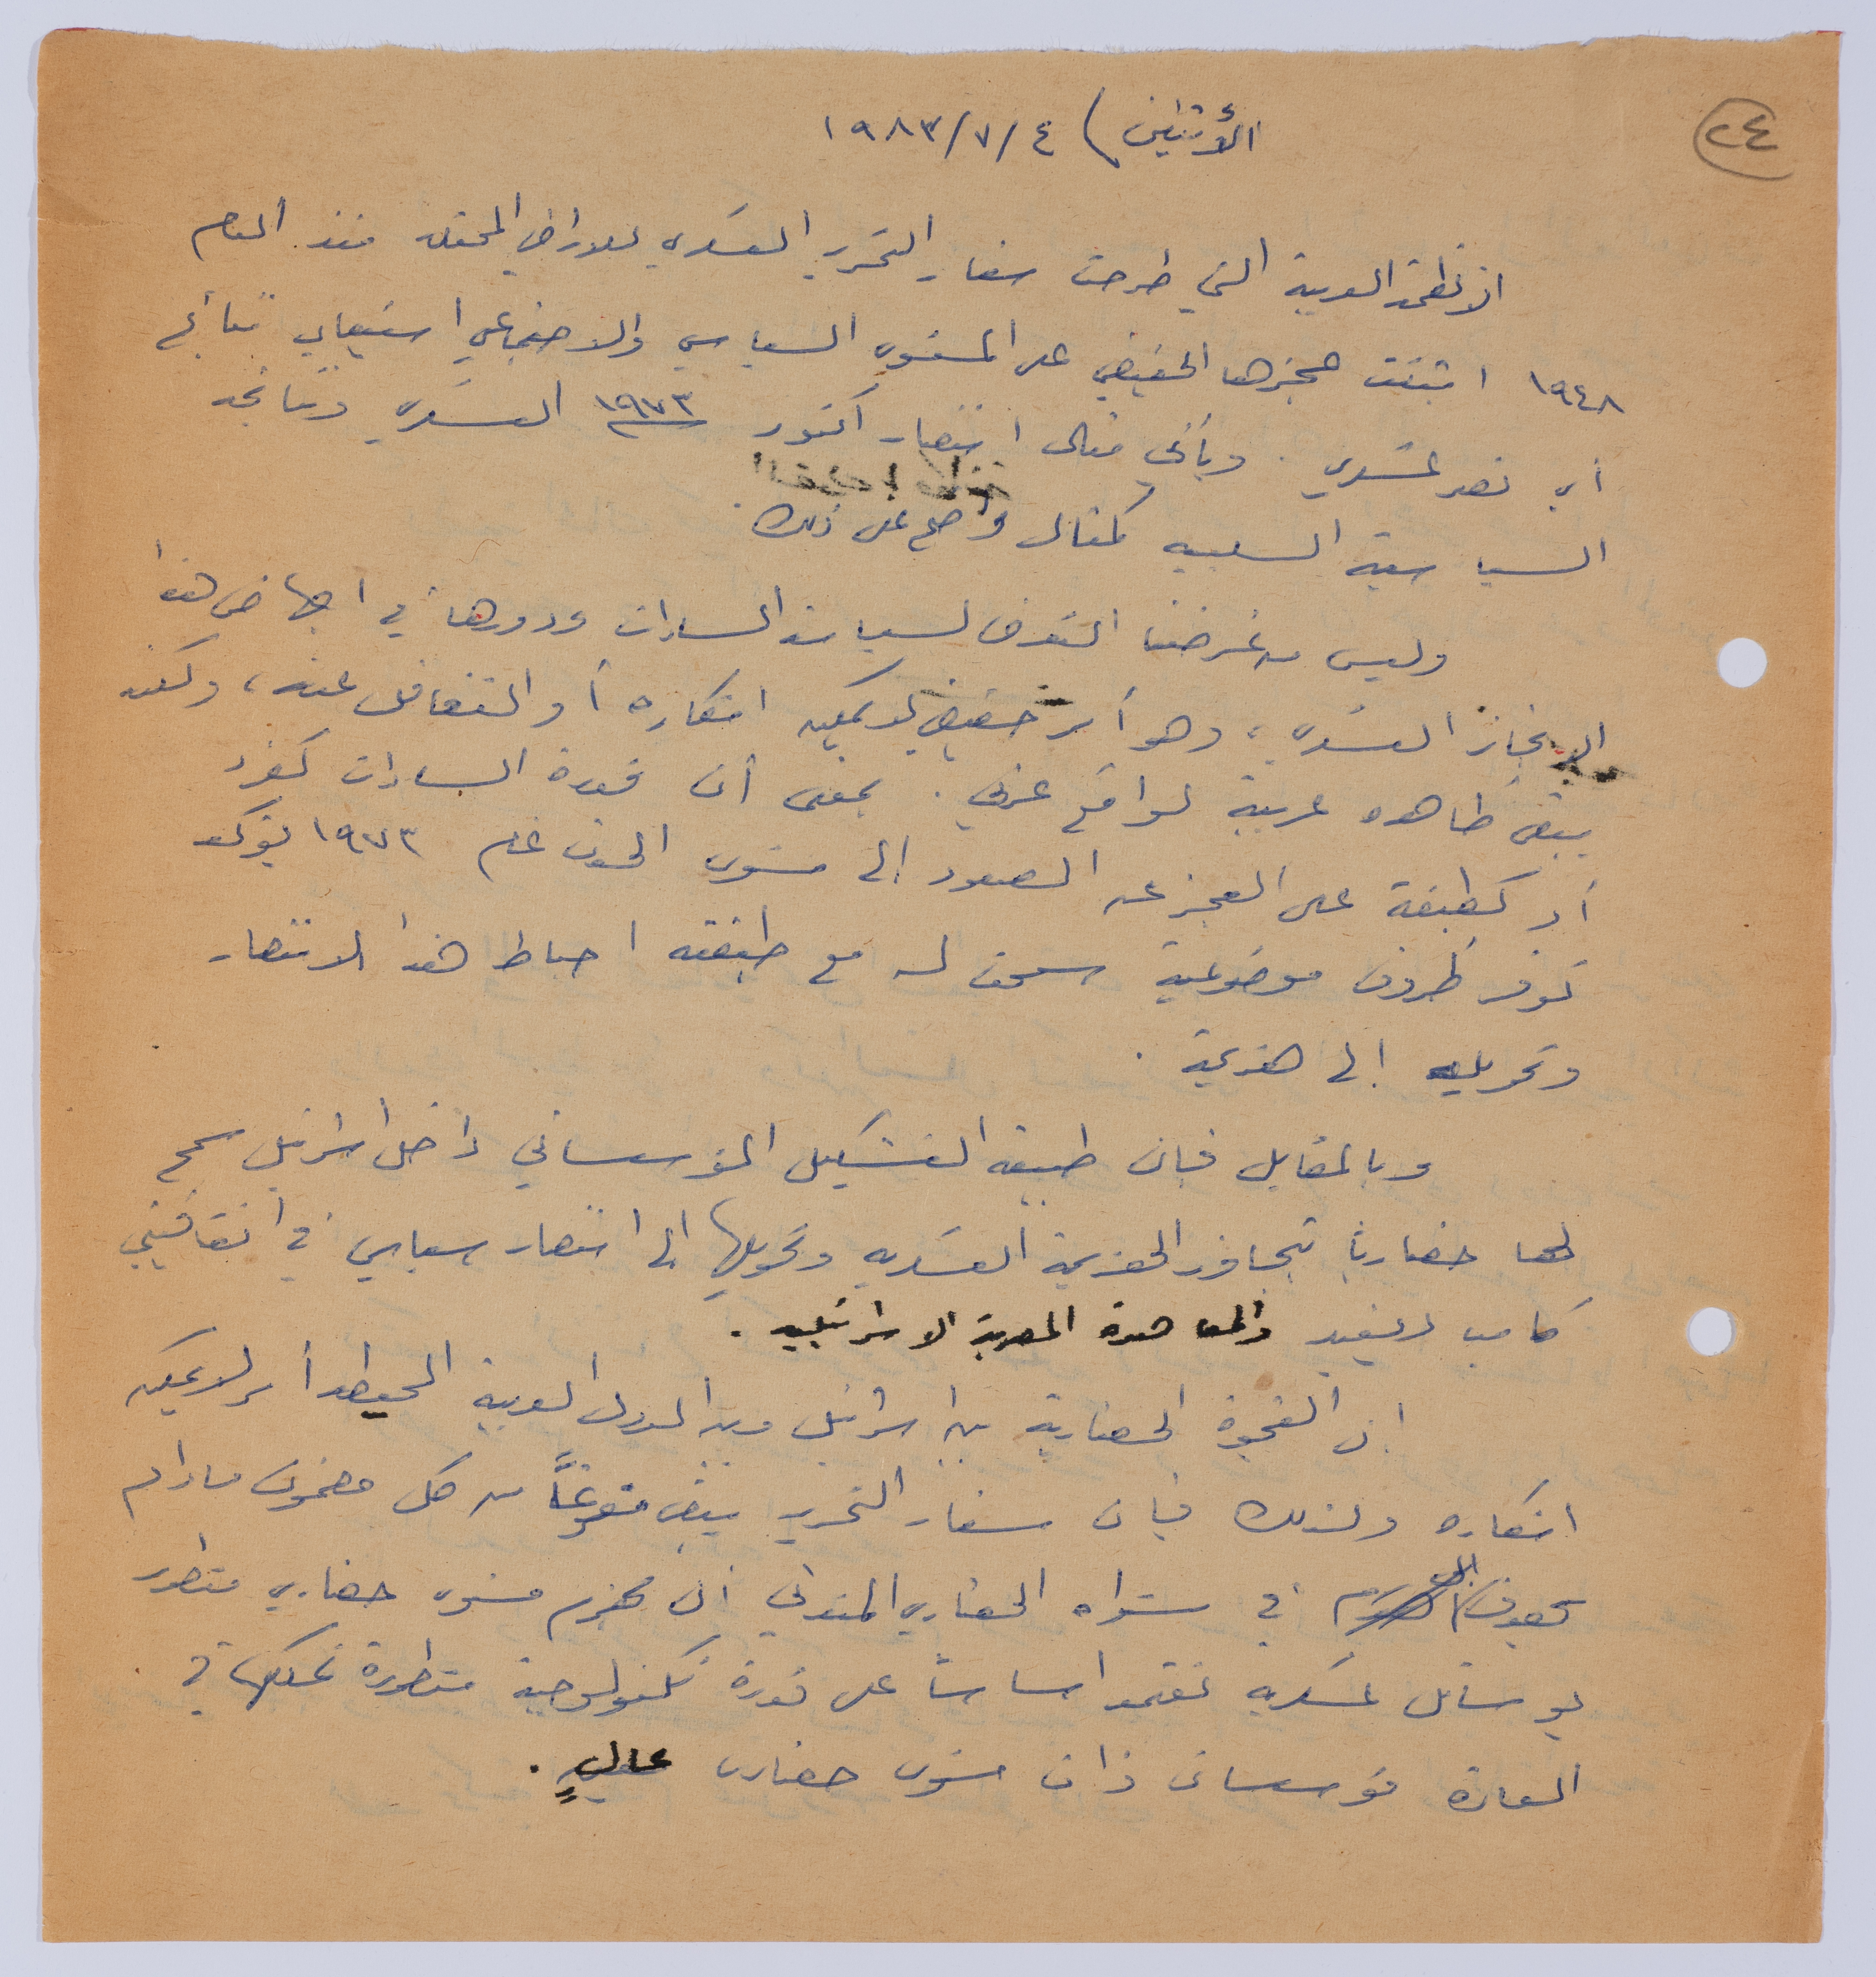 ٢٤
الأثنين) ٤/٧/١٩٨٣
الأنظمة العربية التي طرحت شعار التحرير العسكري للاراضي المحتله منذ العام
١٩٤٨ اثبتت عجزها الحقيقي على المستوى السياسي والاجتماعي استيعاب نتائج
أي نصر عسكري. ويأتي مثال انتصار اكتوبر ١٩٧٣ العسكري ونتائجه
السياسية السلبيه كمثال واضح على ذلك.
وليس من غرضنا التعرض لسياسة السادات ودورها في اجهاض هذا
الإنجاز العسكري، وهو أمر حقيقي لا يمكن انكاره أو التغافل عنه، ولكنه
يبقى ظاهره عربية لواقع عربي. بمعنى أن قدرة السادات كفرد
أو كطبقة على العجز عن الصعود إلى مستوى الحدث عام ١٩٧٣ يؤكد
توفر ظروف موضوعية سمحت له مع طبقته احباط هذا الانتصار
وتحويله إلى هزيمة.
وبالمقابل فإن طبيعة التشكيل المؤسساتي داخل اسرائيل سمح
لها حضارياً تجاوز الهزيمة العسكريه وتحويلها الى انتصار سياسي في اتفاقيتي
كامب ديفيد والمعاهدة المصرية الاسرائيليه.
إن الفجوة الحضارية بين اسرائيل وبين الدول العربية المحيطه أمر لا يمكن
انكاره ولذلك فإن شعار التحرير يبقى مفرغاً من كل مضمون مادام
في مستواه الحضاري المتدني أن يهزم مستوى حضاري متطور
بوسائل عسكريه تعتمد اساساً على قدرة تكنولوجية متطورة تملكها في
العادة مؤسسات ذات مستوى حضاري عالٍ.